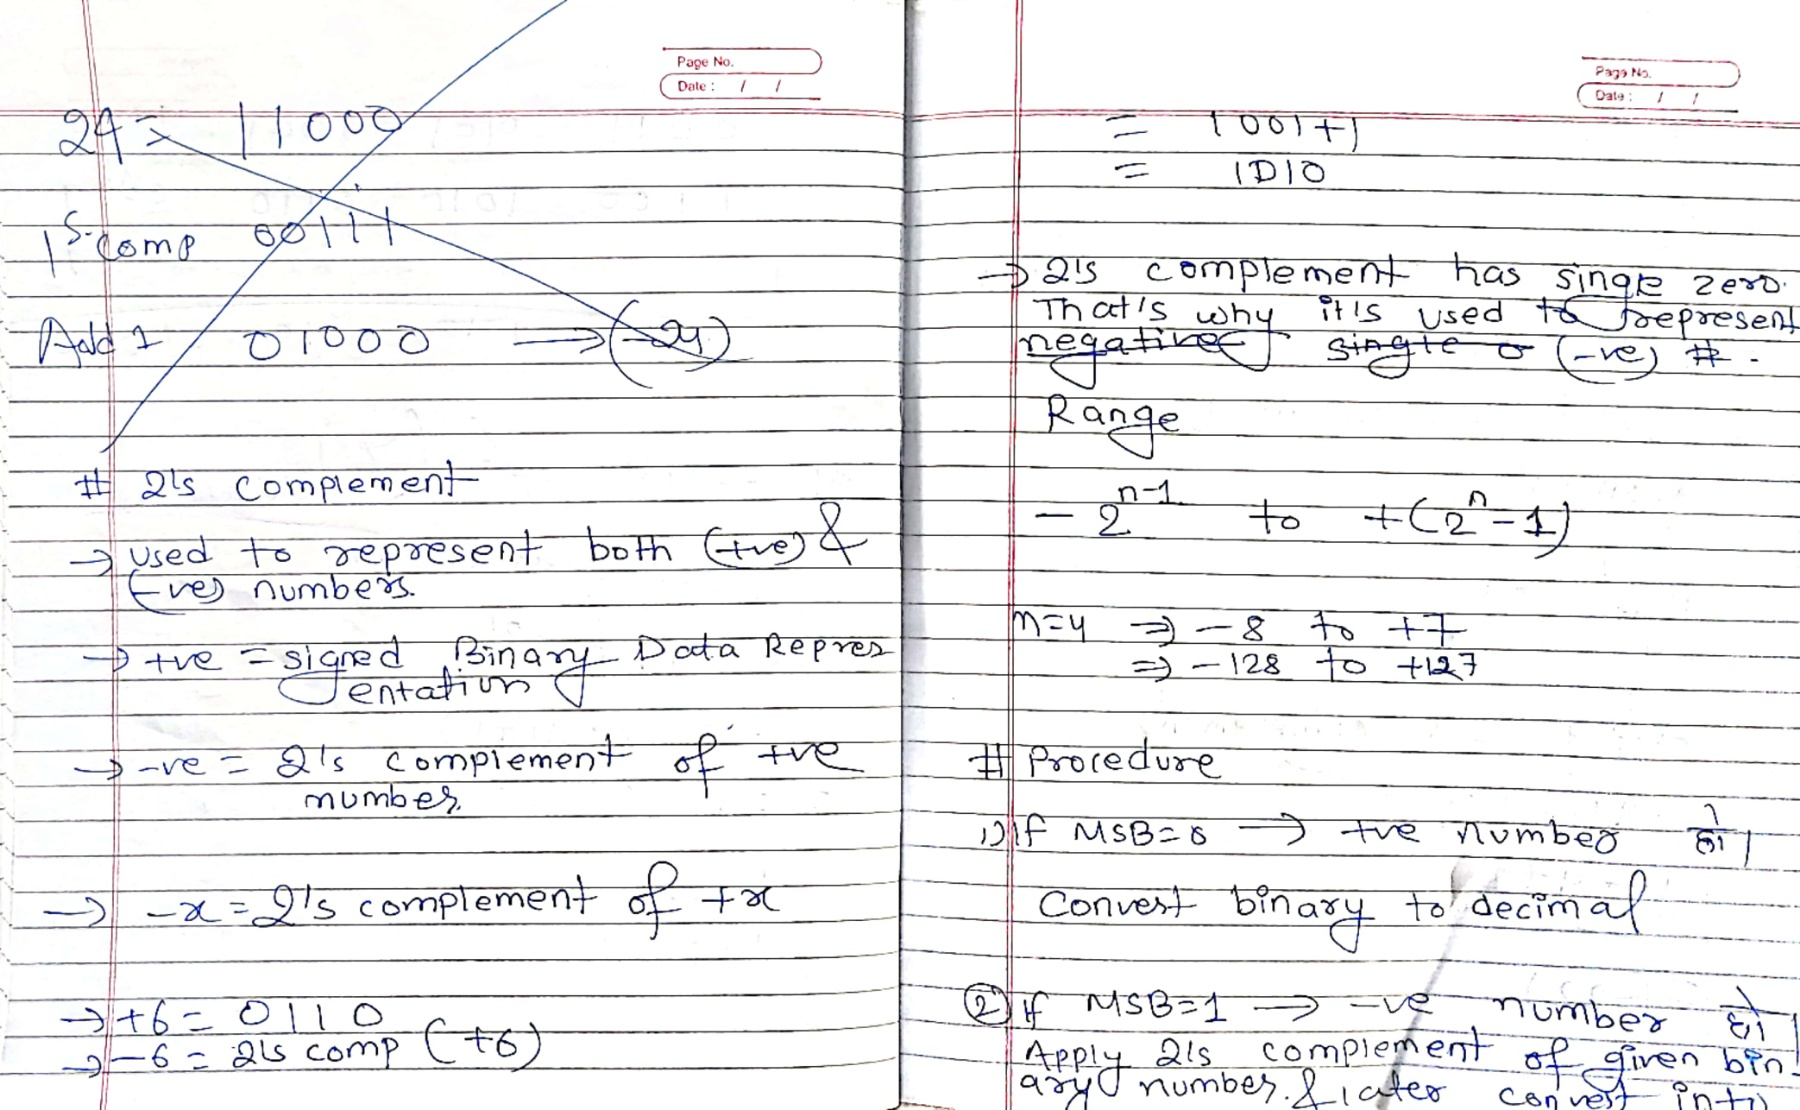 Page No.
Date : / /
24 = 11000
1's comp 00111
Add 1 01000 → (-24)
# 2's complement
→ used to represent both (+ve) &
(-ve) numbers.
→ +ve = signed Binary Data Repres
entation
→ -ve = 2's complement of +ve
number.
→ -x = 2's complement of +x
→ +6 = 0110
→ -6 = 2's comp (+6)
Page No.
Date : / /
= 1001+1
= 1010
→ 2's complement has single zero.
That's why it's used to represent
negative single 0 (-ve) #.
Range
- 2^n-1 to +(2^n-1)
n=4 ⇒ -8 to +7
⇒ -128 to +127
# Procedure
1) If MSB=0 → +ve number हो।
Convert binary to decimal
② If MSB=1 → -ve number हो।
Apply 2's complement of given bin-
ary number. & later convert into